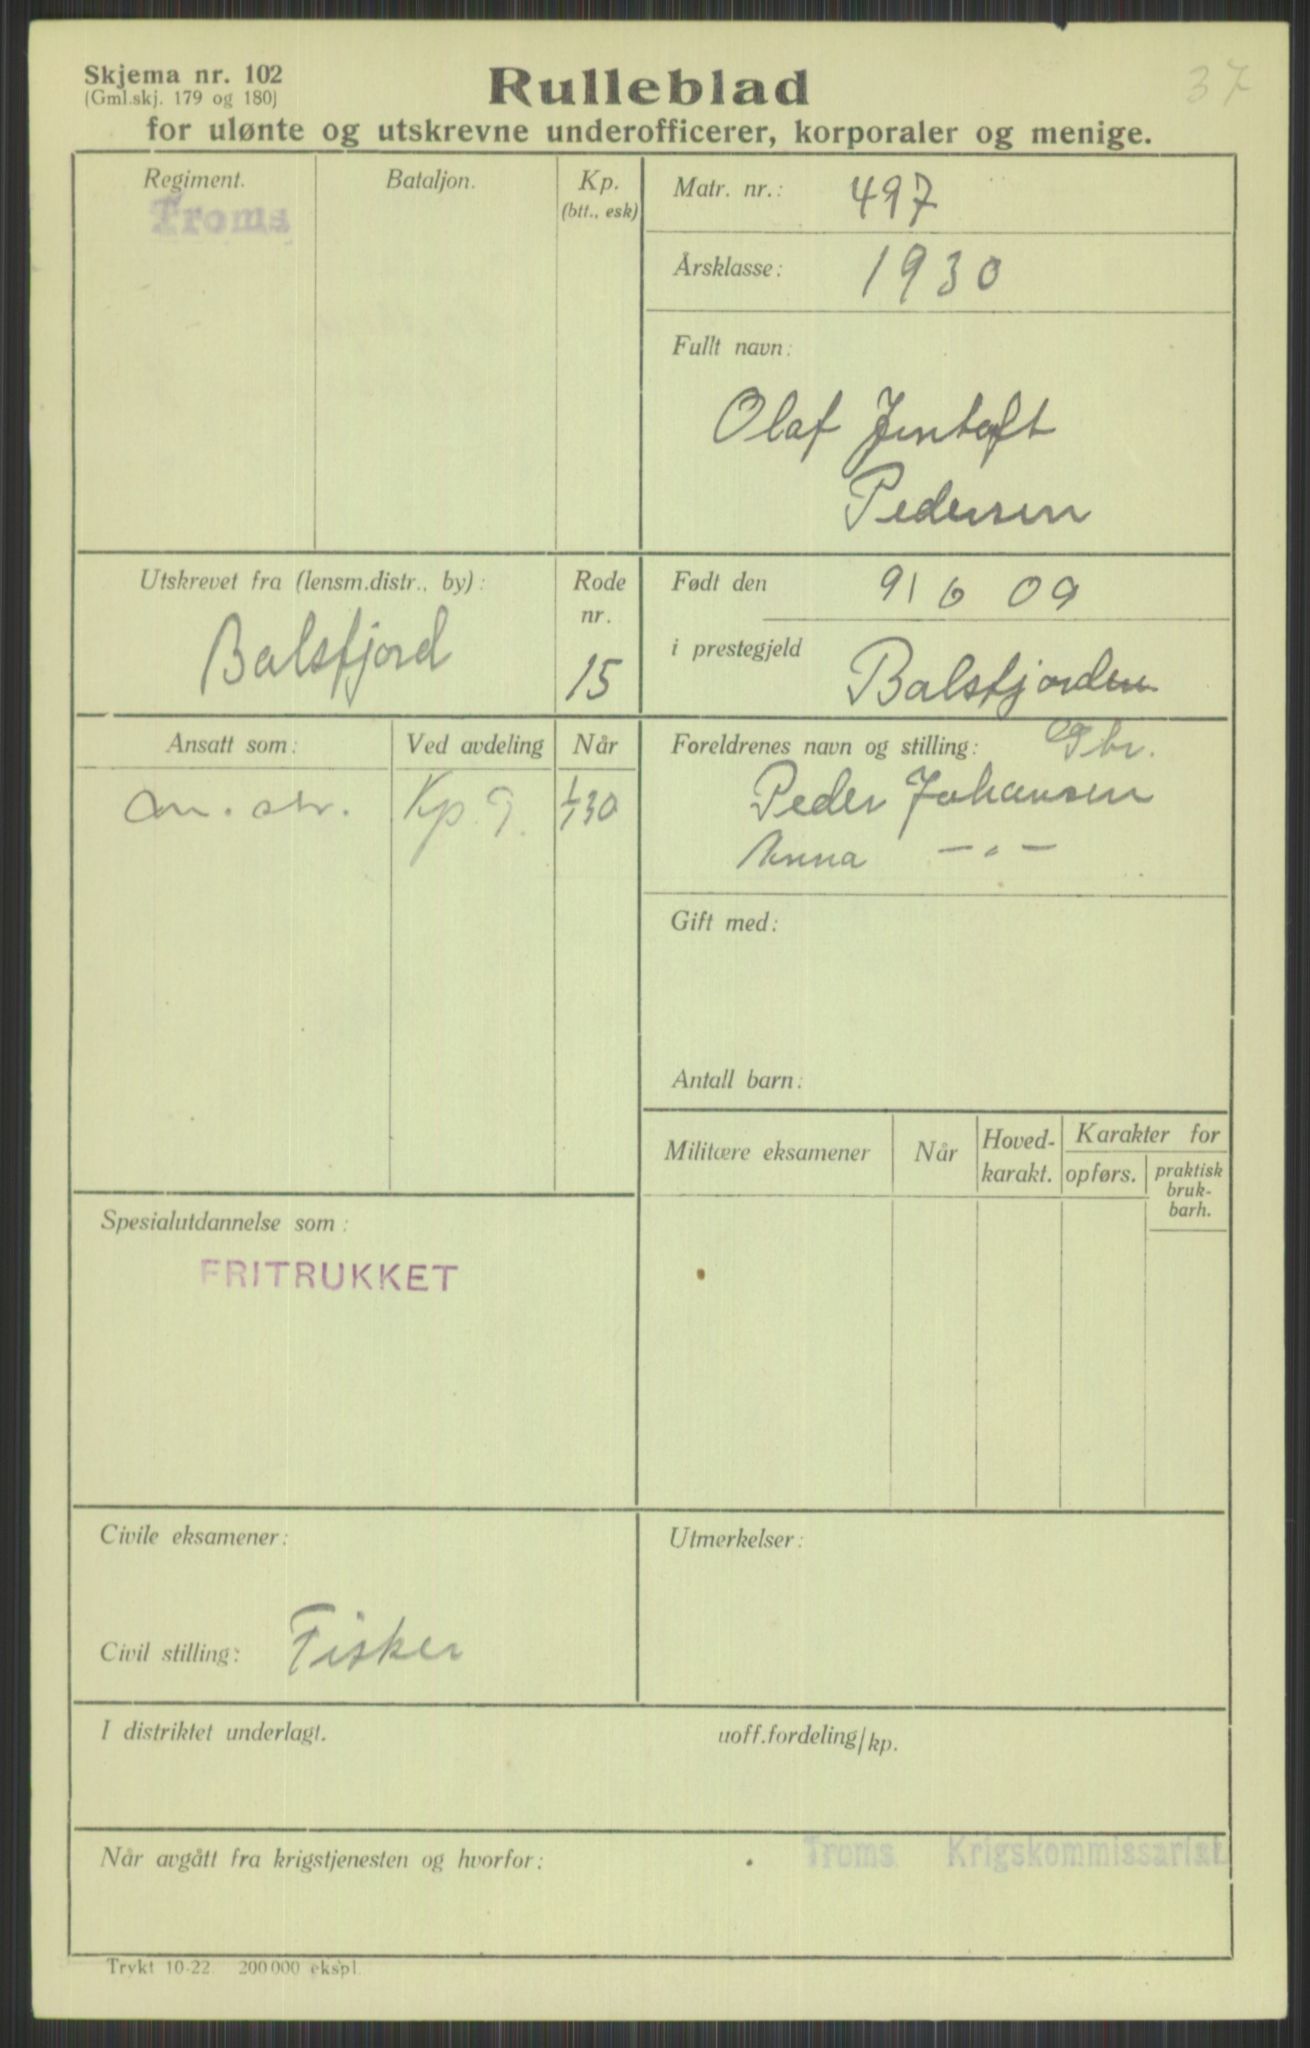 37
Skjema nr. 102
(Gml.skj. 179 og 180)
Rulleblad
for ulønte og utskrevne underofficerer, korporaler og menige.
Regiment.
Troms
Bataljon.
Kp.
(btt., esk)
Matr. nr.: 497
Årsklasse: 1930
Fullt navn:
Olaf Jentoft
Pedersen
Utskrevet fra (lensm.distr., by):
Balsfjord
Rode
nr.
15
Født den 9/6 09
i prestegjeld Balsfjorden
Ansatt som:
Ved avdeling
Når
str.
Kp. 9.
1/1 30
Foreldrenes navn og stilling: Gbr.
Peder Johansen
Anna — " —
Gift med:
Antall barn:
Militære eksamener
Når
Hoved-
karakt.
Karakter for
opførs.
praktisk
bruk-
barh.
Spesialutdannelse som:
FRITRUKKET
Civile eksamener:
Civil stilling: Fisker
Utmerkelser:
I distriktet underlagt.
uoff.fordeling/kp.
Når avgått fra krigstjenesten og hvorfor:
Troms Krigskommissariat
Trykt 10-22. 200000 ekspl.